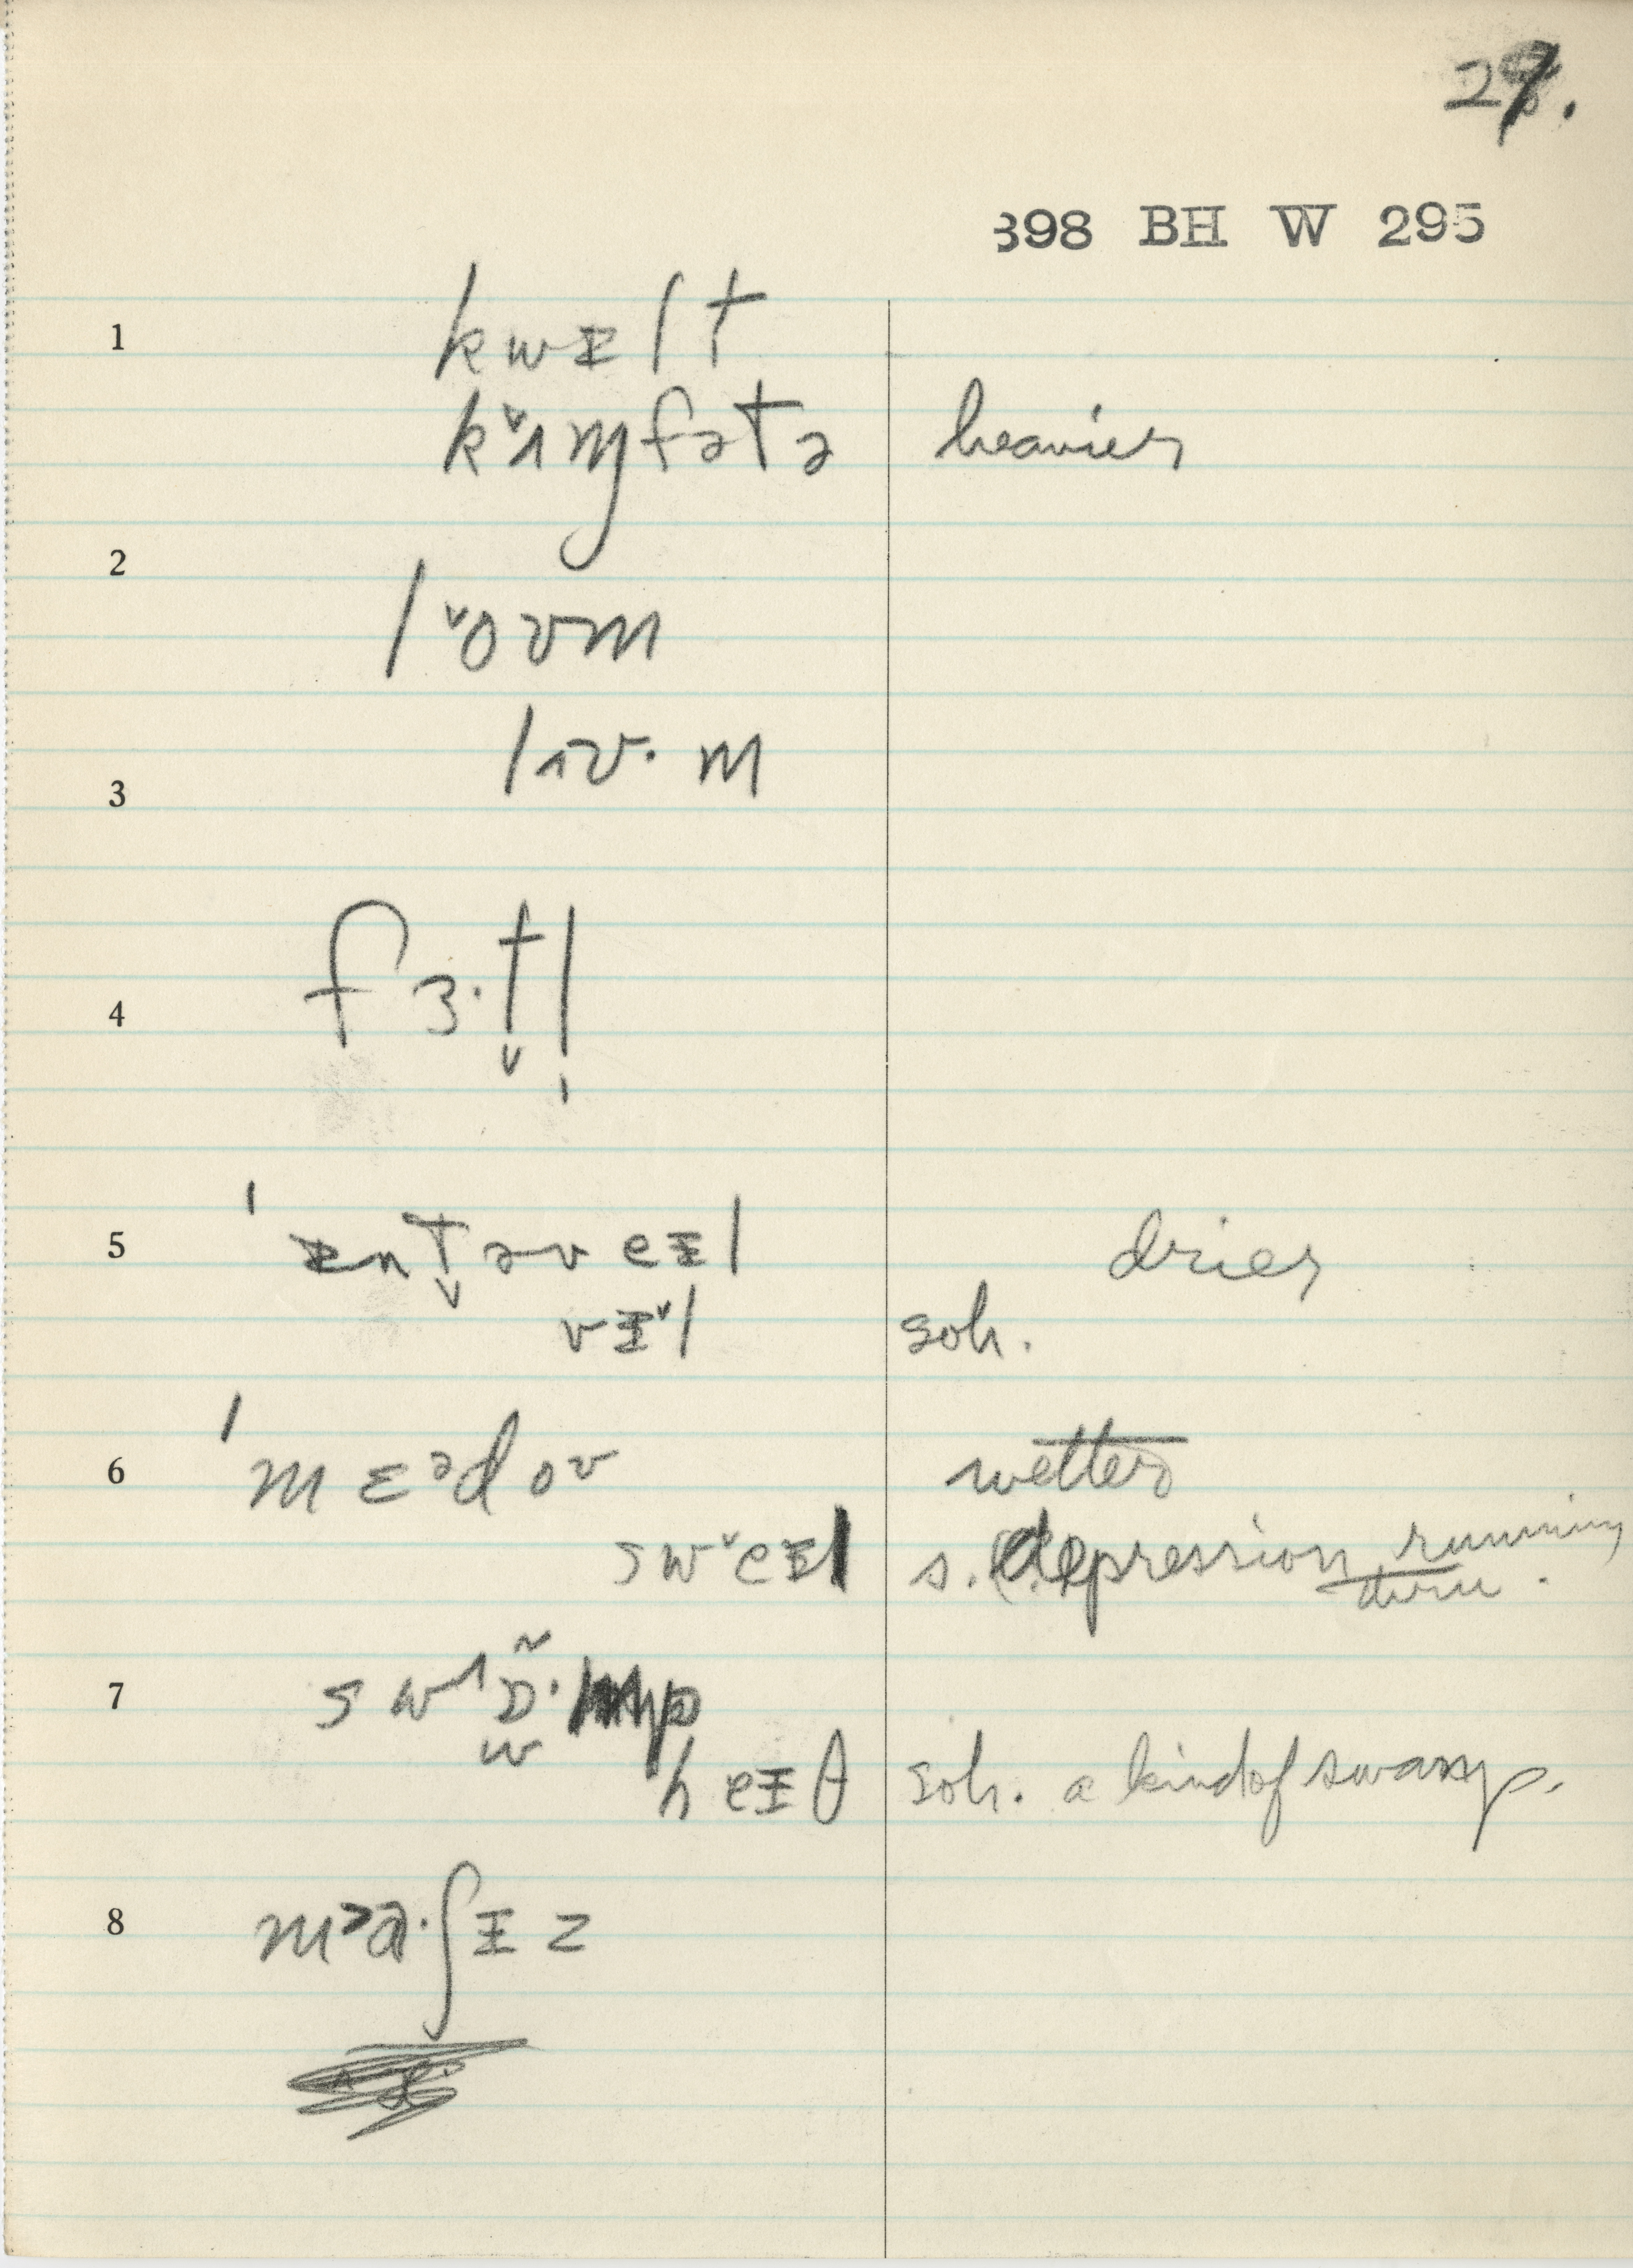 29.
398 BH W 295
1 kwᵻlt
kˇʌmfətə heavier
2
lˇoʊm
lʌʊ· m
3
4 fɜ·t̬l̩
5 ˈᵻnt̬əv eᵻl drier
vᵻˇl soh.
6 ˈmɛᵊdoʊ wetter
swˇeᵻl s. (depression running
thru.
7 swᶺɒ̃·mp
w
heᵻθ soh. a kind of swamp.
8 m˃a·ʃᵻz